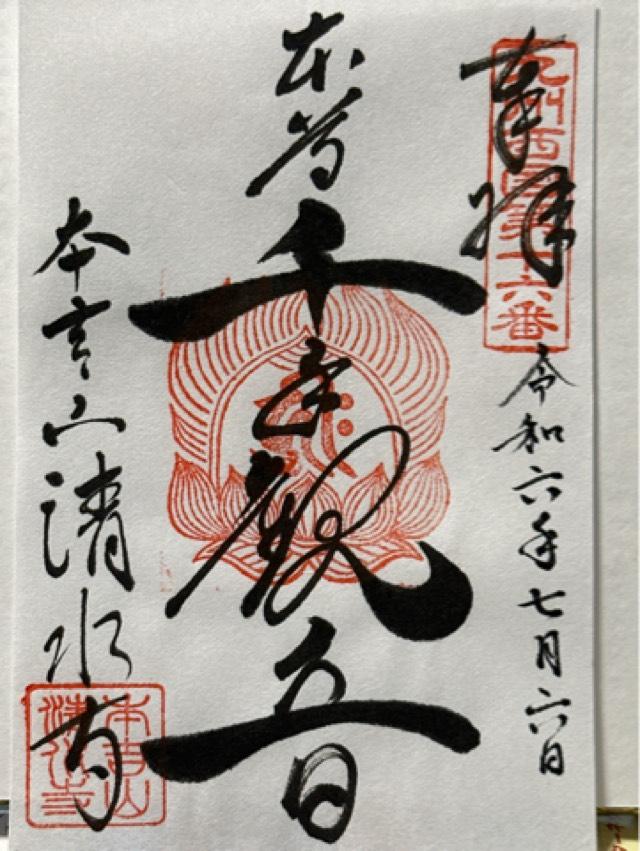 九州西国第十六番
奉拝
令和六年七月六日
本尊
千手観音
本吉山清水寺
本吉山
清水寺